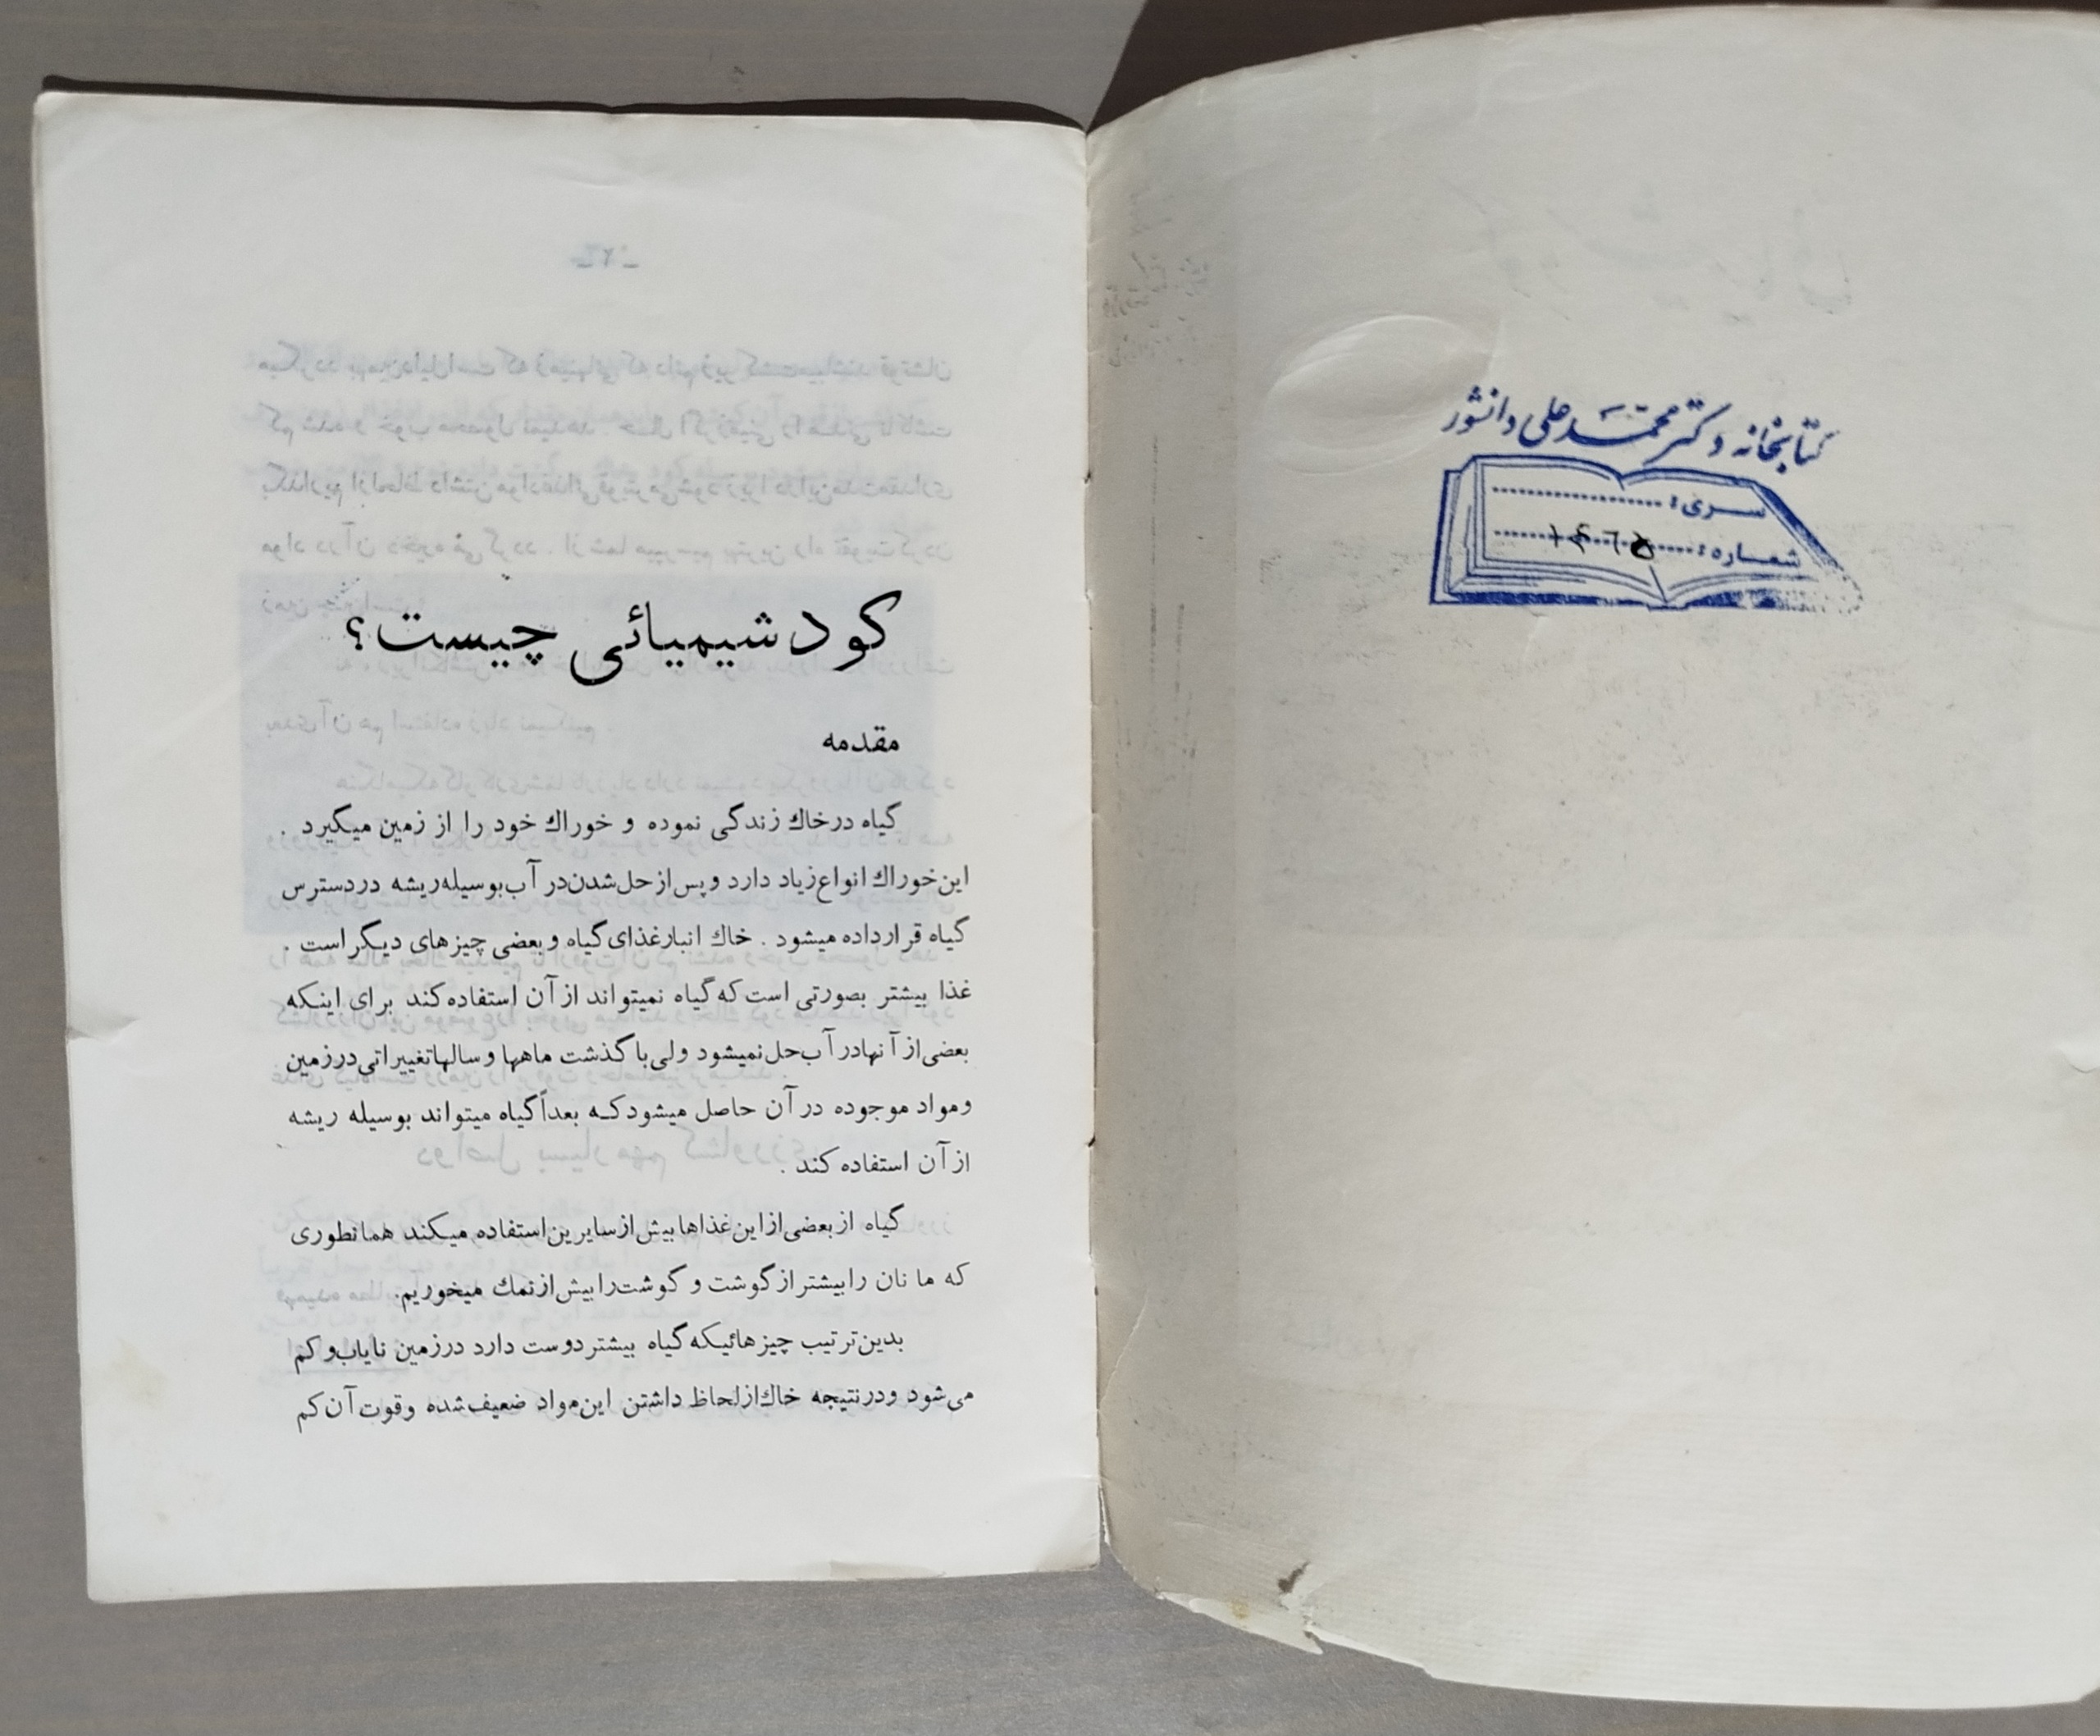 کتابخانه دکتر محمد علی دانشور
سری:
شماره: ۱۴۶۵
کود شیمیائی چیست؟
مقدمه
گیاه درخاك زندگی نموده و خوراك خود را از زمین میگیرد .
این خوراك انواع زیاد دارد و پس از حل شدن در آب بوسیله ریشه دردسترس
گیاه قرار داده میشود . خاك انبار غذای گیاه و بعضی چیزهای دیگر است .
غذا بیشتر بصورتی است که گیاه نمیتواند از آن استفاده کند برای اینکه
بعضی از آنها در آب حل نمیشود ولی با گذشت ماهها و سالها تغییراتی درزمین
و مواد موجوده در آن حاصل میشود که بعداً گیاه میتواند بوسیله ریشه
از آن استفاده کند .
گیاه از بعضی از این غذاها بیش از سایرین استفاده میکند همانطوری
که ما نان را بیشتر از گوشت و گوشت را بیش از نمك میخوریم.
بدین ترتیب چیزهائیکه گیاه بیشتر دوست دارد درزمین نایاب و کم
می شود و درنتیجه خاك از لحاظ داشتن این مواد ضعیف شده و قوت آن کم